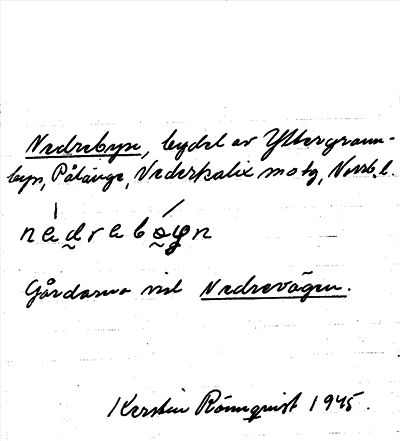 Nedrebyn, bydel av Yttergrann-
byn, Pålänge, Nederkalix sn otg, Norrb.l.
nedrebøyn
Gårdarna vid Nedrevägen.
Kerstin Rönnqvist 1945.